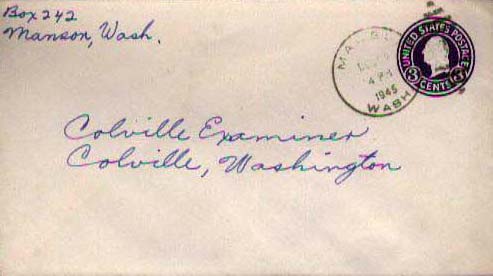 Box 242
Manson, Wash.
4 PM
1945
WASH
UNITED STATES POSTAGE
3 CENTS 3
Colville Examiner
Colville, Washington